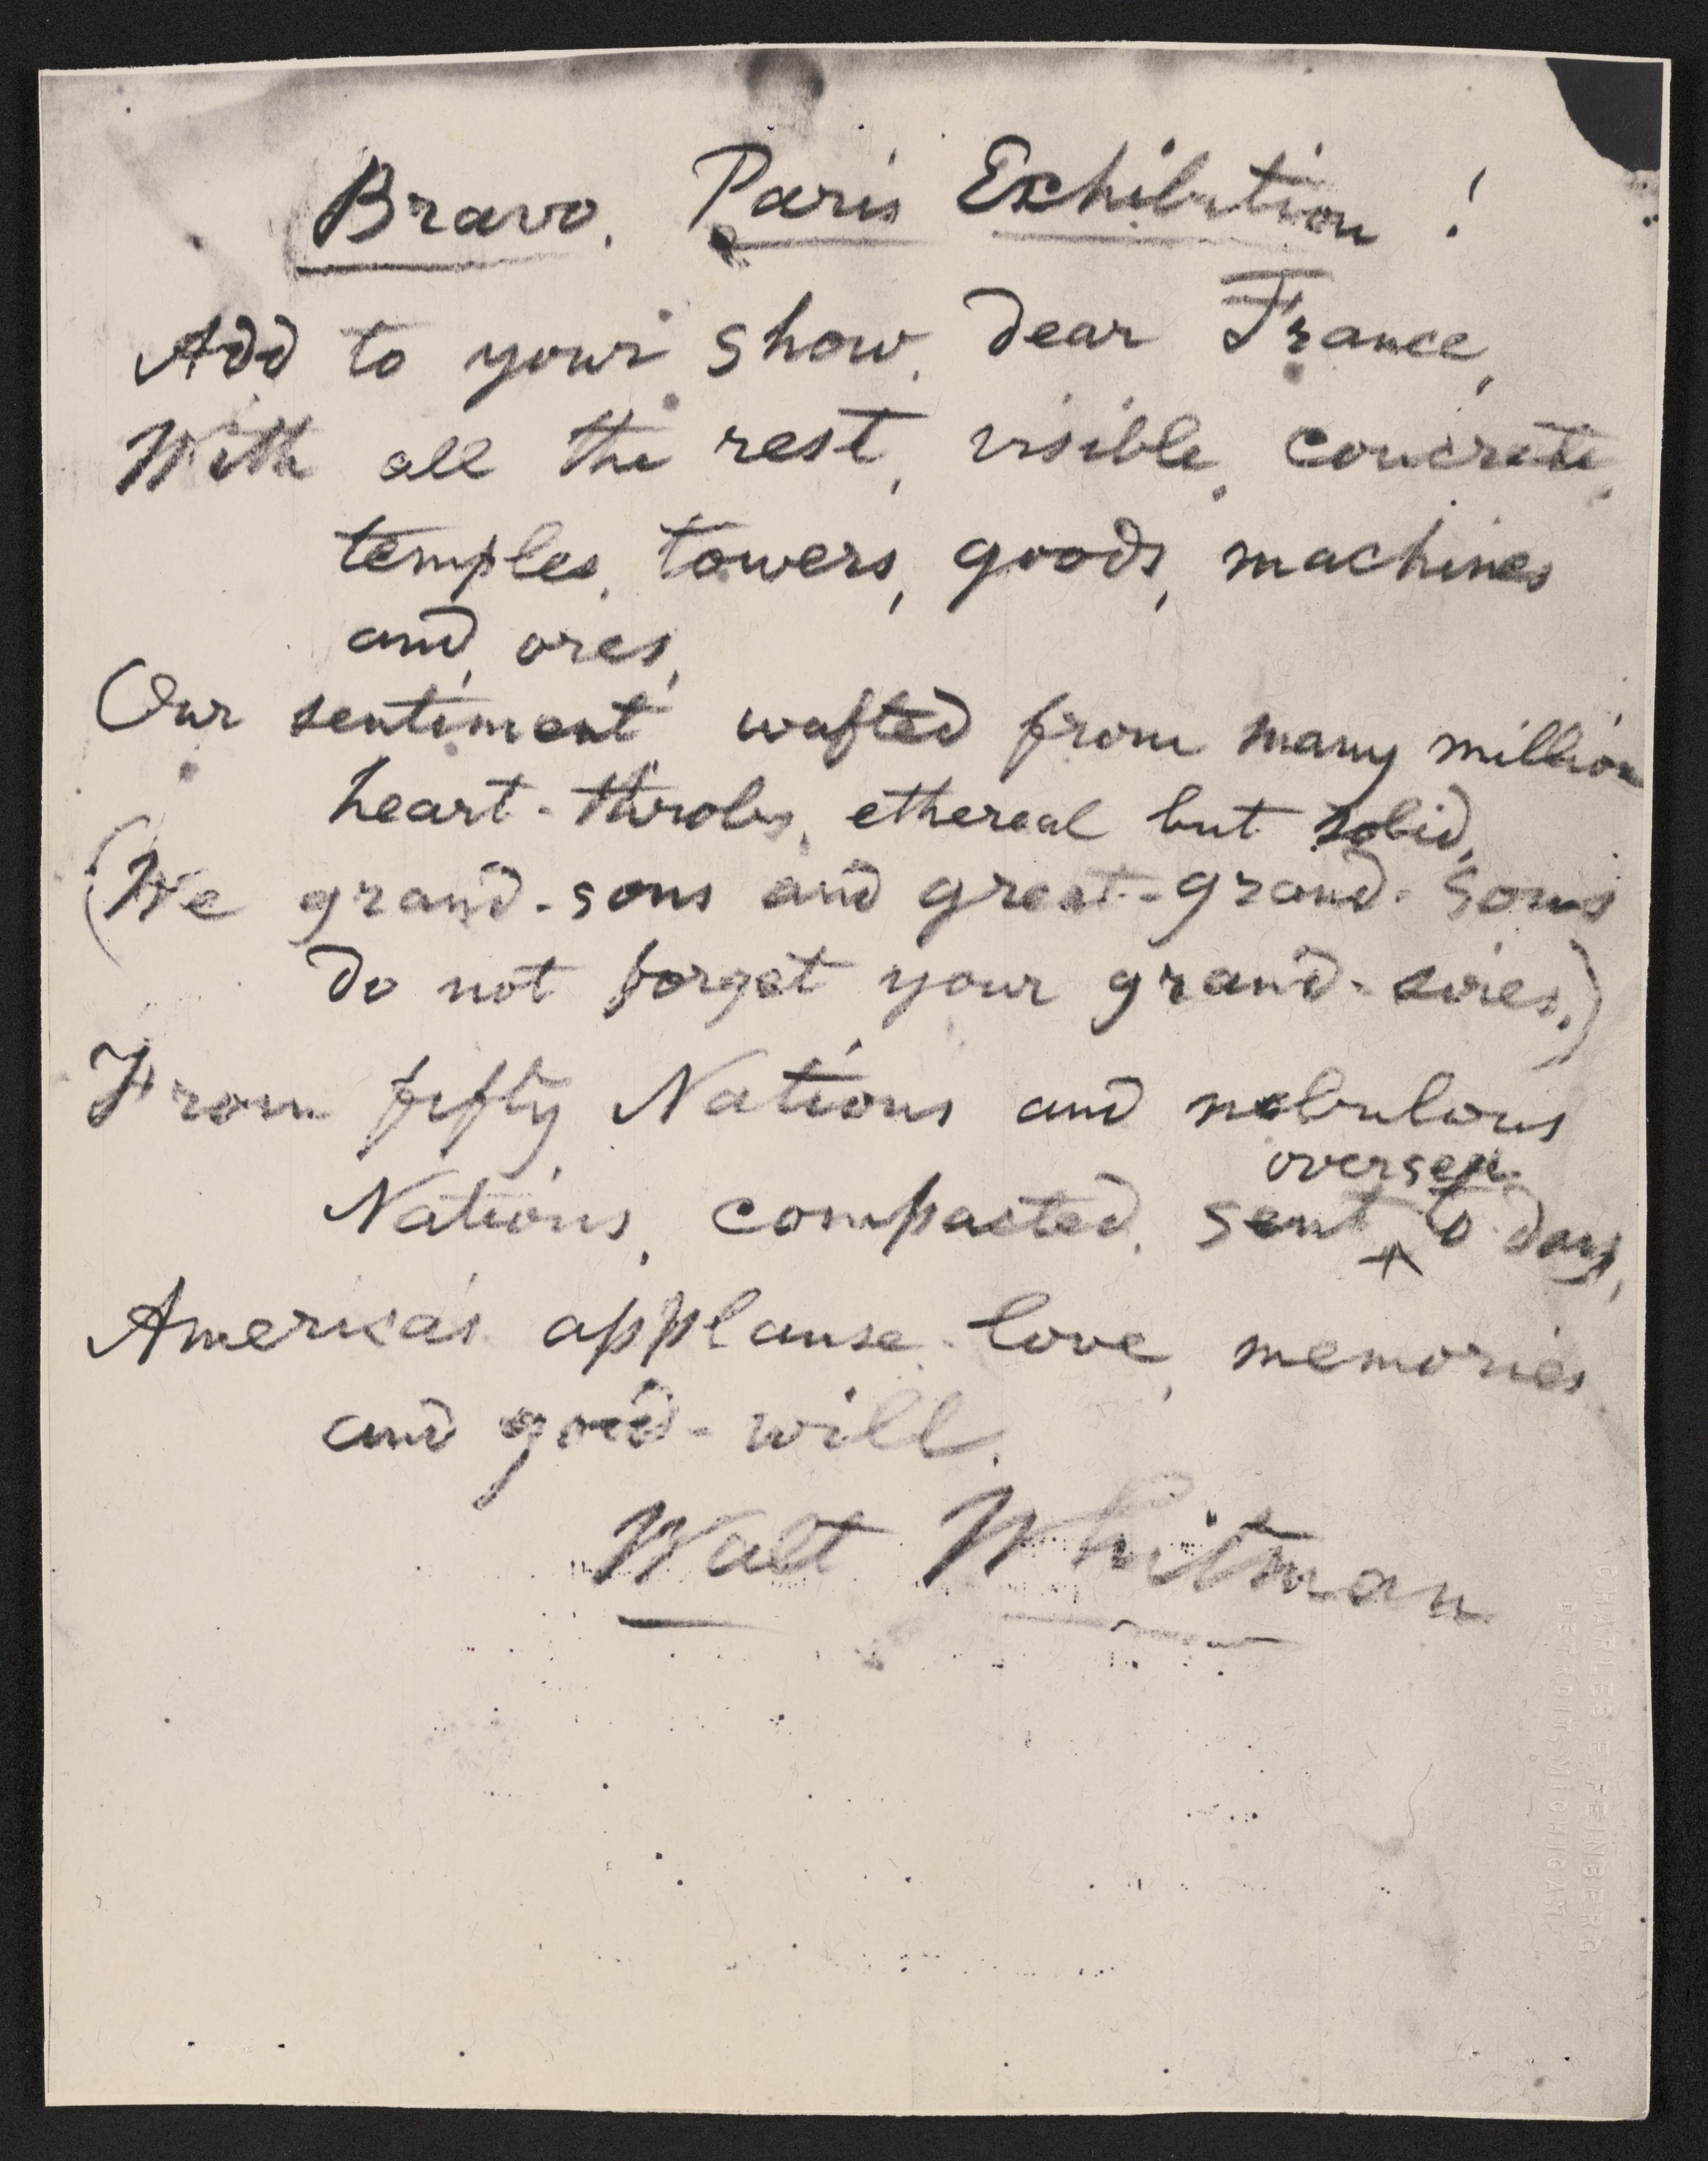 Bravo, Paris Exhibition!
Add to your show, dear France,
With all the rest, visible, concrete,
temples, towers, goods, machines
and ores,
Our sentiment, wafted from many million
heart-throbs, ethereal but solid,
(We grand-sons and great-grand-sons
do not forget your grand-sires.)
From fifty Nations and nebulous
oversea
Nations, compacted, sent ^ to-day,
America's applause, love, memories
and good-will.
Walt Whitman
CHARLES E FEINBERG
DETROIT, MICHIGAN